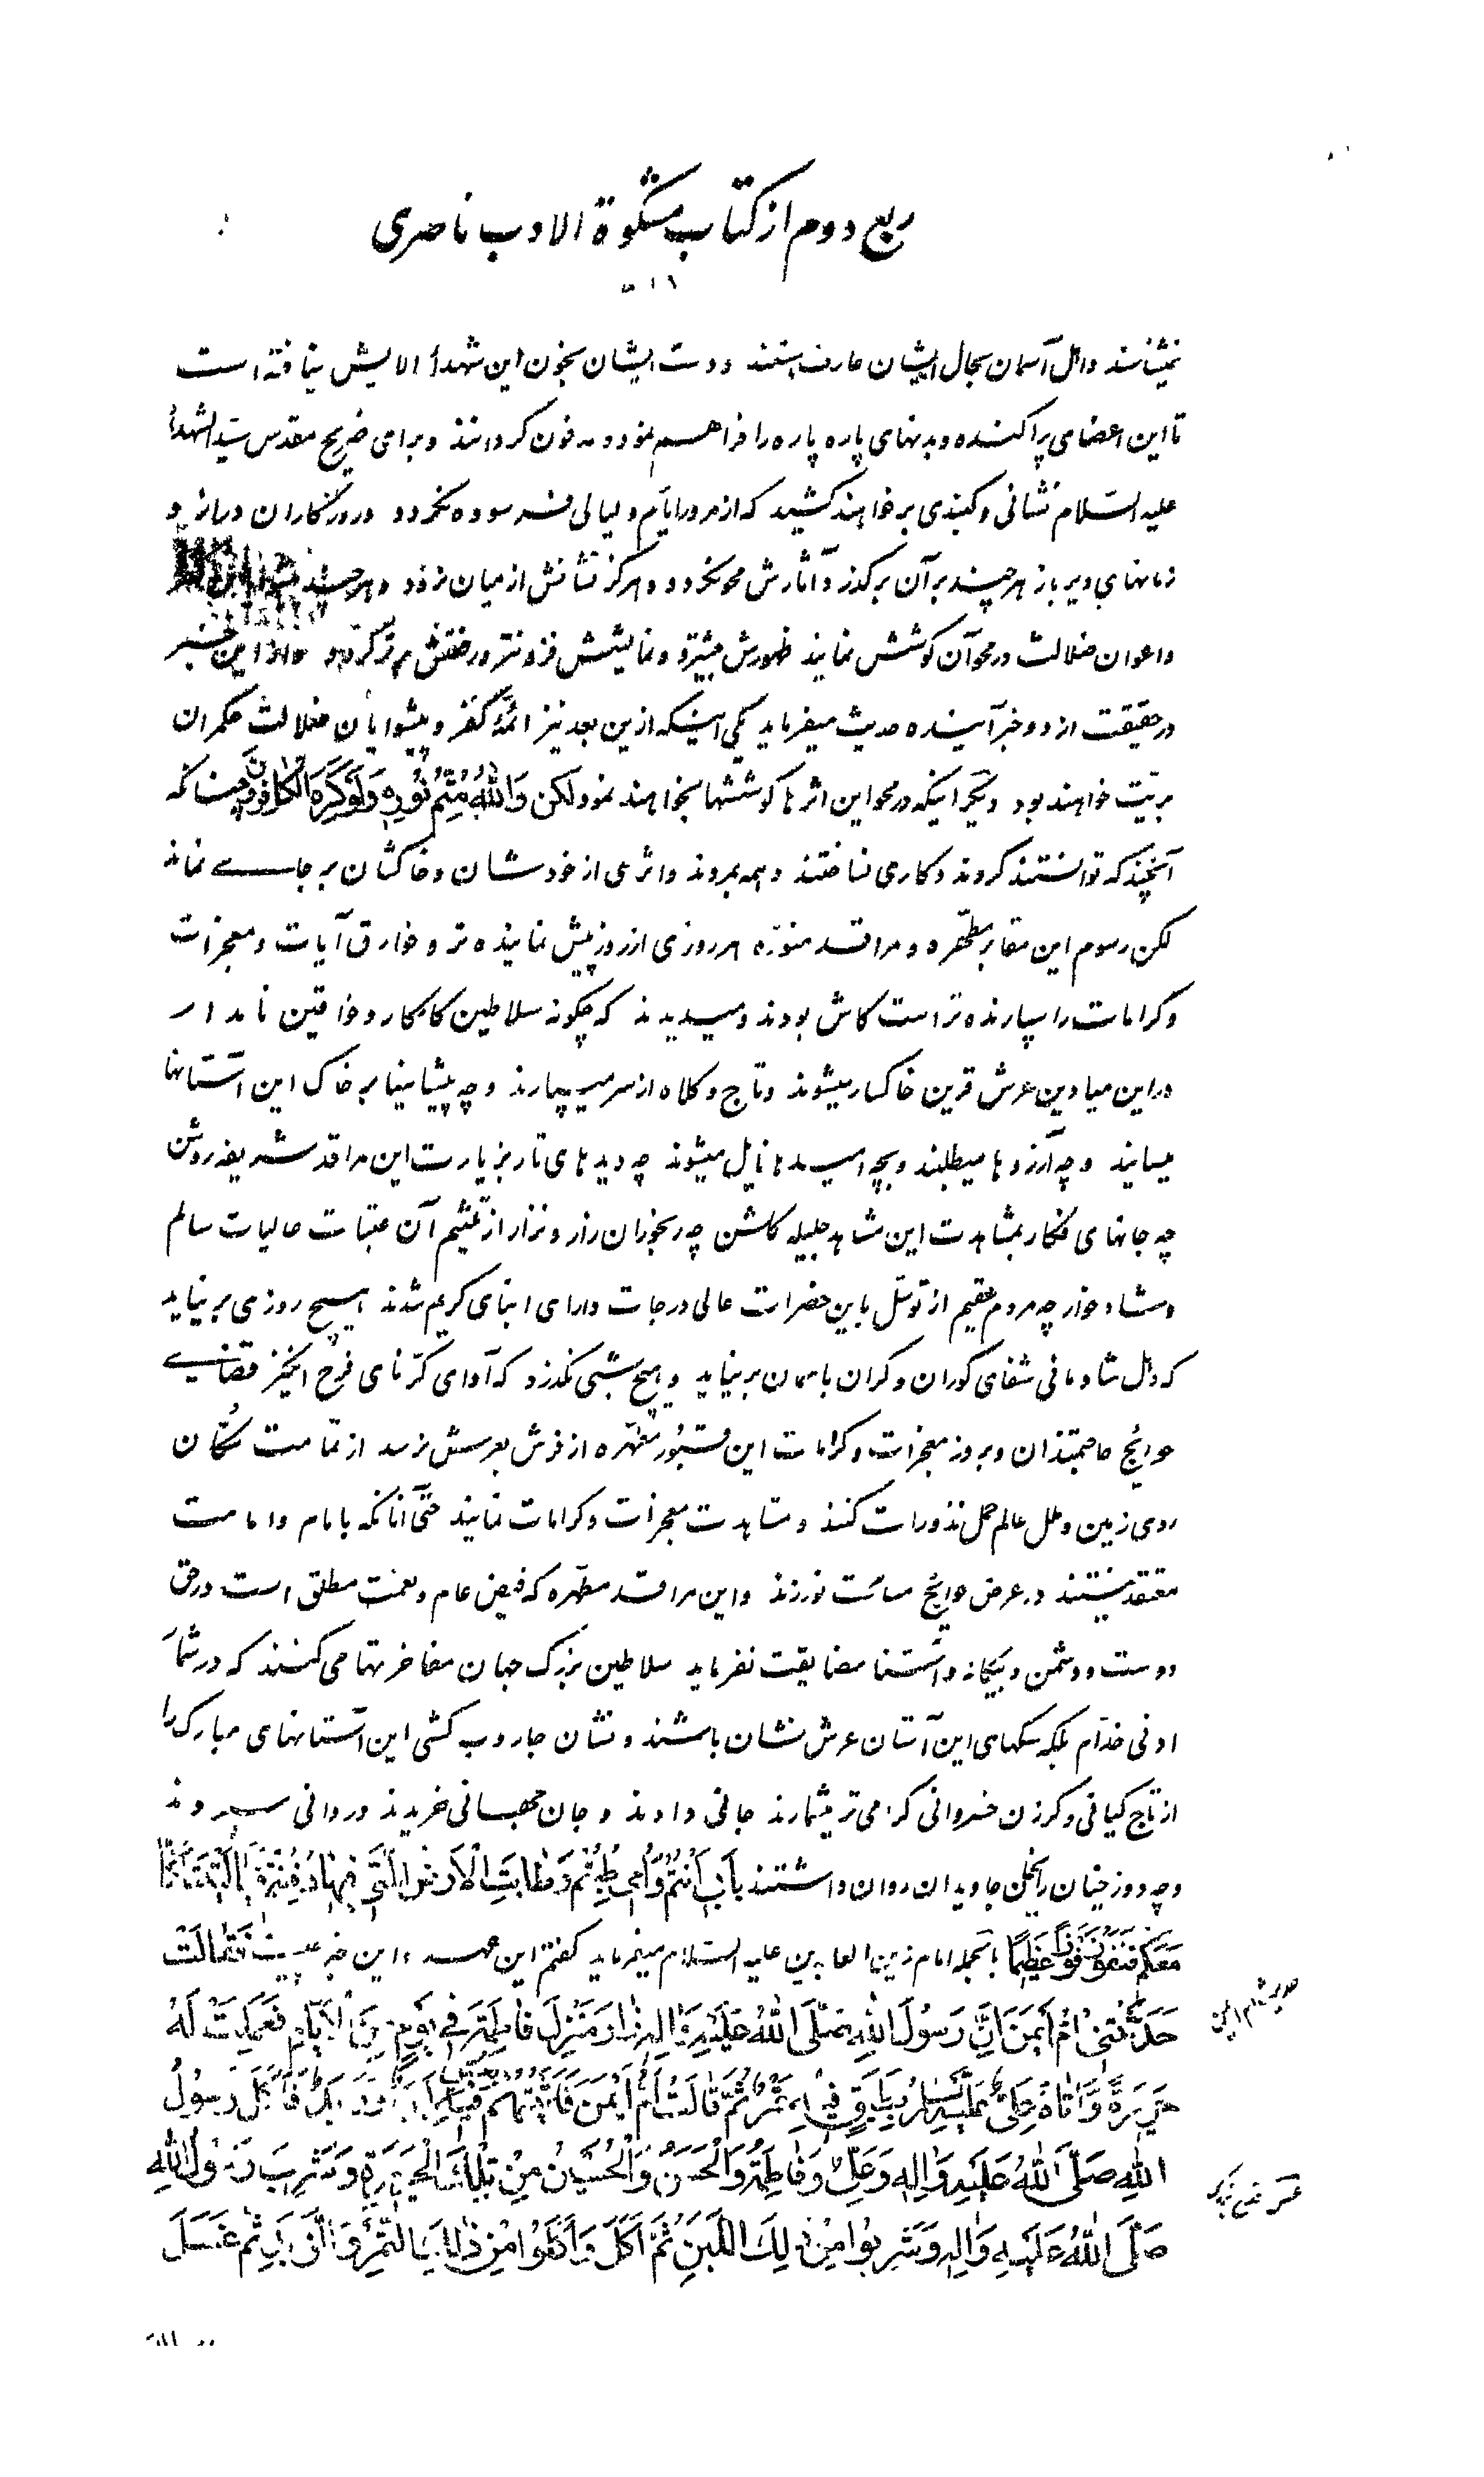 ربع دوم از کتاب مشکوة الادب ناصری
نمیشناسند و اهل آسمان بحال ایشان عارف هستند و دست ایشان بخون این شهدا الایش نیافته است
تا این اعضای پراکنده و بدنهای پاره پاره را فراهم نموده مدفون گردانند و برای ضریح مقدس سید الشهدأ
علیه السلام نشانی و گنبدی بر خواهند کشید که از مرور ایام و لیالی فرسوده نگردد و روزگاران دراز و
زمانهای دیرباز هر چند بر آن برگذرد آثارش محو نگردد و هرگز نشانش از میان نرود و هر چند
و اعوان ضلالت در محو آن کوشش نمایند ظهورش بیشتر و نمایشش فزونتر و رفعتش برتر گردد و از این خبر
در حقیقت از دو خبر آینده حدیث میفرماید یکی اینکه ازین بعد نیز ائمۀ کفر و پیشوایان ضلالت حکمران
بریّت خواهند بود دیگر اینکه در محو این اثرها کوششها بخواهند نمود لکن وَاللهُ مُتِمُّ نُورِهِ وَلَوْ كَرِهَ الْكافِرُونَ چنانکه
آنچند که توانستند کردند و کاری نساختند و همه بمردند و اثری از خودشان و خاکشان بر جای نماند
لکن رسوم این مقابر مطهره و مراقد منوّره هر روزی از روز پیش نماینده تر و خوارق آیات و معجزات
و کرامات را سپارنده تر است کاش بودند و میدیدند که چگونه سلاطین کامکار و خواقین نامدار
در این میادین عرش قرین خاکسار میشوند و تاج و کلاه از سر میسپارند و چه پیشانیها بر خاک این آستانها
میسایند و چه آرزوها میطلبند و بچه امیدها نایل میشوند چه دیدهای تار بزیارت این مراقد شریفه روشن
چه جانهای فکار بمشاهدت این مشاهد جلیله گلشن چه رنجوران زار و نزار از تلثیم آن عتبات عالیات سالم
و شاد خوار چه مردم عقیم از توسّل باین حضرات عالی درجات دارای ابنای کریم شدند هیچ روزی بر نیاید
که دل شادمانی شفای کوران و کران باسمان بر نیاید و هیچ شبی نگذرد که آوای کرّنای فرح انگیز قضای
حوایج حاجتمندان و بروز معجزات و کرامات این قبور مطهّره از فرش بعرش نرسد از تمامت سُکّان
روی زمین و ملل عالم حمل نذورات کنند و مشاهدت معجزات و کرامات نمایند حتّی آنانکه بامام و امامت
معتقد نیستند در عرض حوایج مسائلت نورزند و این مراقد مطهّره که فیض عام و نعمت مطلق است در حق
دوست و دشمن و بیگانه و آشنا مضایقت نفرماید سلاطین بزرگ جهان مفاخرتها می کنند که در شمار
ادنی خدّام بلکه سگهای این آستان عرش نشان باشند و نشان جاروب کشی این آستانهای مبارک را
از تاج کیانی و گرزن خسروانی گرامی تر میشمارند جانی دادند و جان جهانی خریدند و روانی سپردند
و چه دوزخیان را بخلد جاویدان روان داشتند بِأَبِی أَنْتُمْ وَأُمِّی طِبْتُمْ وَطابَتِ الْأَرْضُ الَّتی فِیها دُفِنْتُمْ یا لَیْتَنا کُنّا
مَعَکُمْ فَنَفُوزَ فَوْزاً عَظِیماً بالجمله امام زین العابدین علیه السلام میفرماید گفتم این عهد و این خبر چیست فَقالَتْ
حَدَّثَتْنی أُمُّ أَیْمَنَ أَنَّ رَسُولَ اللهِ صَلَّی اللهُ عَلَیْهِ وَالِهِ زارَ مَنْزِلَ فاطِمَةَ فی یَوْمٍ مِنَ الْأَیّامِ فَعَمِلَتْ لَهُ
حَرِیرَةً وَأَتاهُ عَلِیٌّ عَلَیْهِ السَّلامُ بِطَبَقٍ فِیهِ تَمْرٌ ثُمَّ قالَتْ أُمُّ أَیْمَنَ فَأَتَیْتُهُمْ بِعُسٍّ فِیهِ لَبَنٌ وَزُبْدٌ فَأَکَلَ رَسُولُ
اللهِ صَلَّی اللهُ عَلَیْهِ وَالِهِ وَعَلِیٌّ وَفاطِمَةُ وَالْحَسَنُ وَالْحُسَیْنُ مِنْ تِلْكَ الْحَرِیرَةِ وَشَرِبَ رَسُولُ اللهِ
صَلَّی اللهُ عَلَیْهِ وَالِهِ وَشَرِبُوا مِنْ ذلِكَ اللَّبَنِ ثُمَّ أَکَلَ وَأَکَلُوا مِنْ ذلِكَ التَّمْرِ وَالزُّبْدِ ثُمَّ غَسَلَ
حدیث ام ایمن